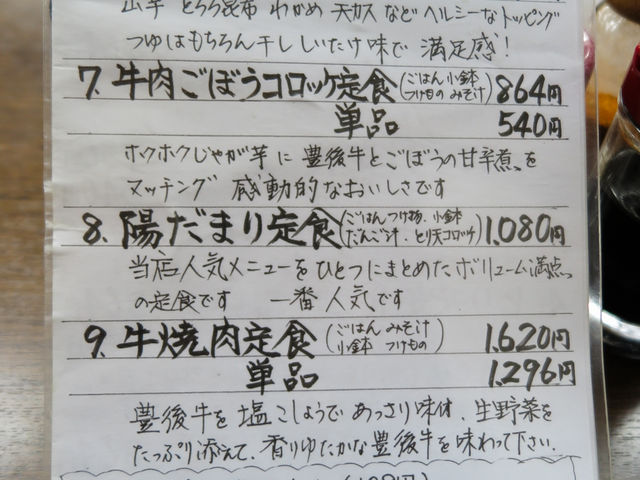 山芋 とろろ昆布 わかめ 天カス などヘルシーなトッピング
つゆはもちろん干ししいたけ味で 満足感!
7. 牛肉ごぼうコロッケ定食(ごはん 小鉢 864円
つけもの みそ汁)
単品 540円
ホクホクじゃが芋に 豊後牛とごぼうの甘辛煮を
マッチング 感動的なおいしさです
8. 陽だまり定食(ごはん つけ物、小鉢 1.080円
だんご汁、とり天コロッケ)
当店人気メニューをひとつにまとめたボリューム満点
の定食です 一番人気です
9. 牛焼肉定食(ごはん みそ汁 1.620円
小鉢 つけもの)
単品 1.296円
豊後牛を塩こしょうであっさり味付、生野菜を
たっぷり添えて、香りゆたかな豊後牛を味わって下さい.